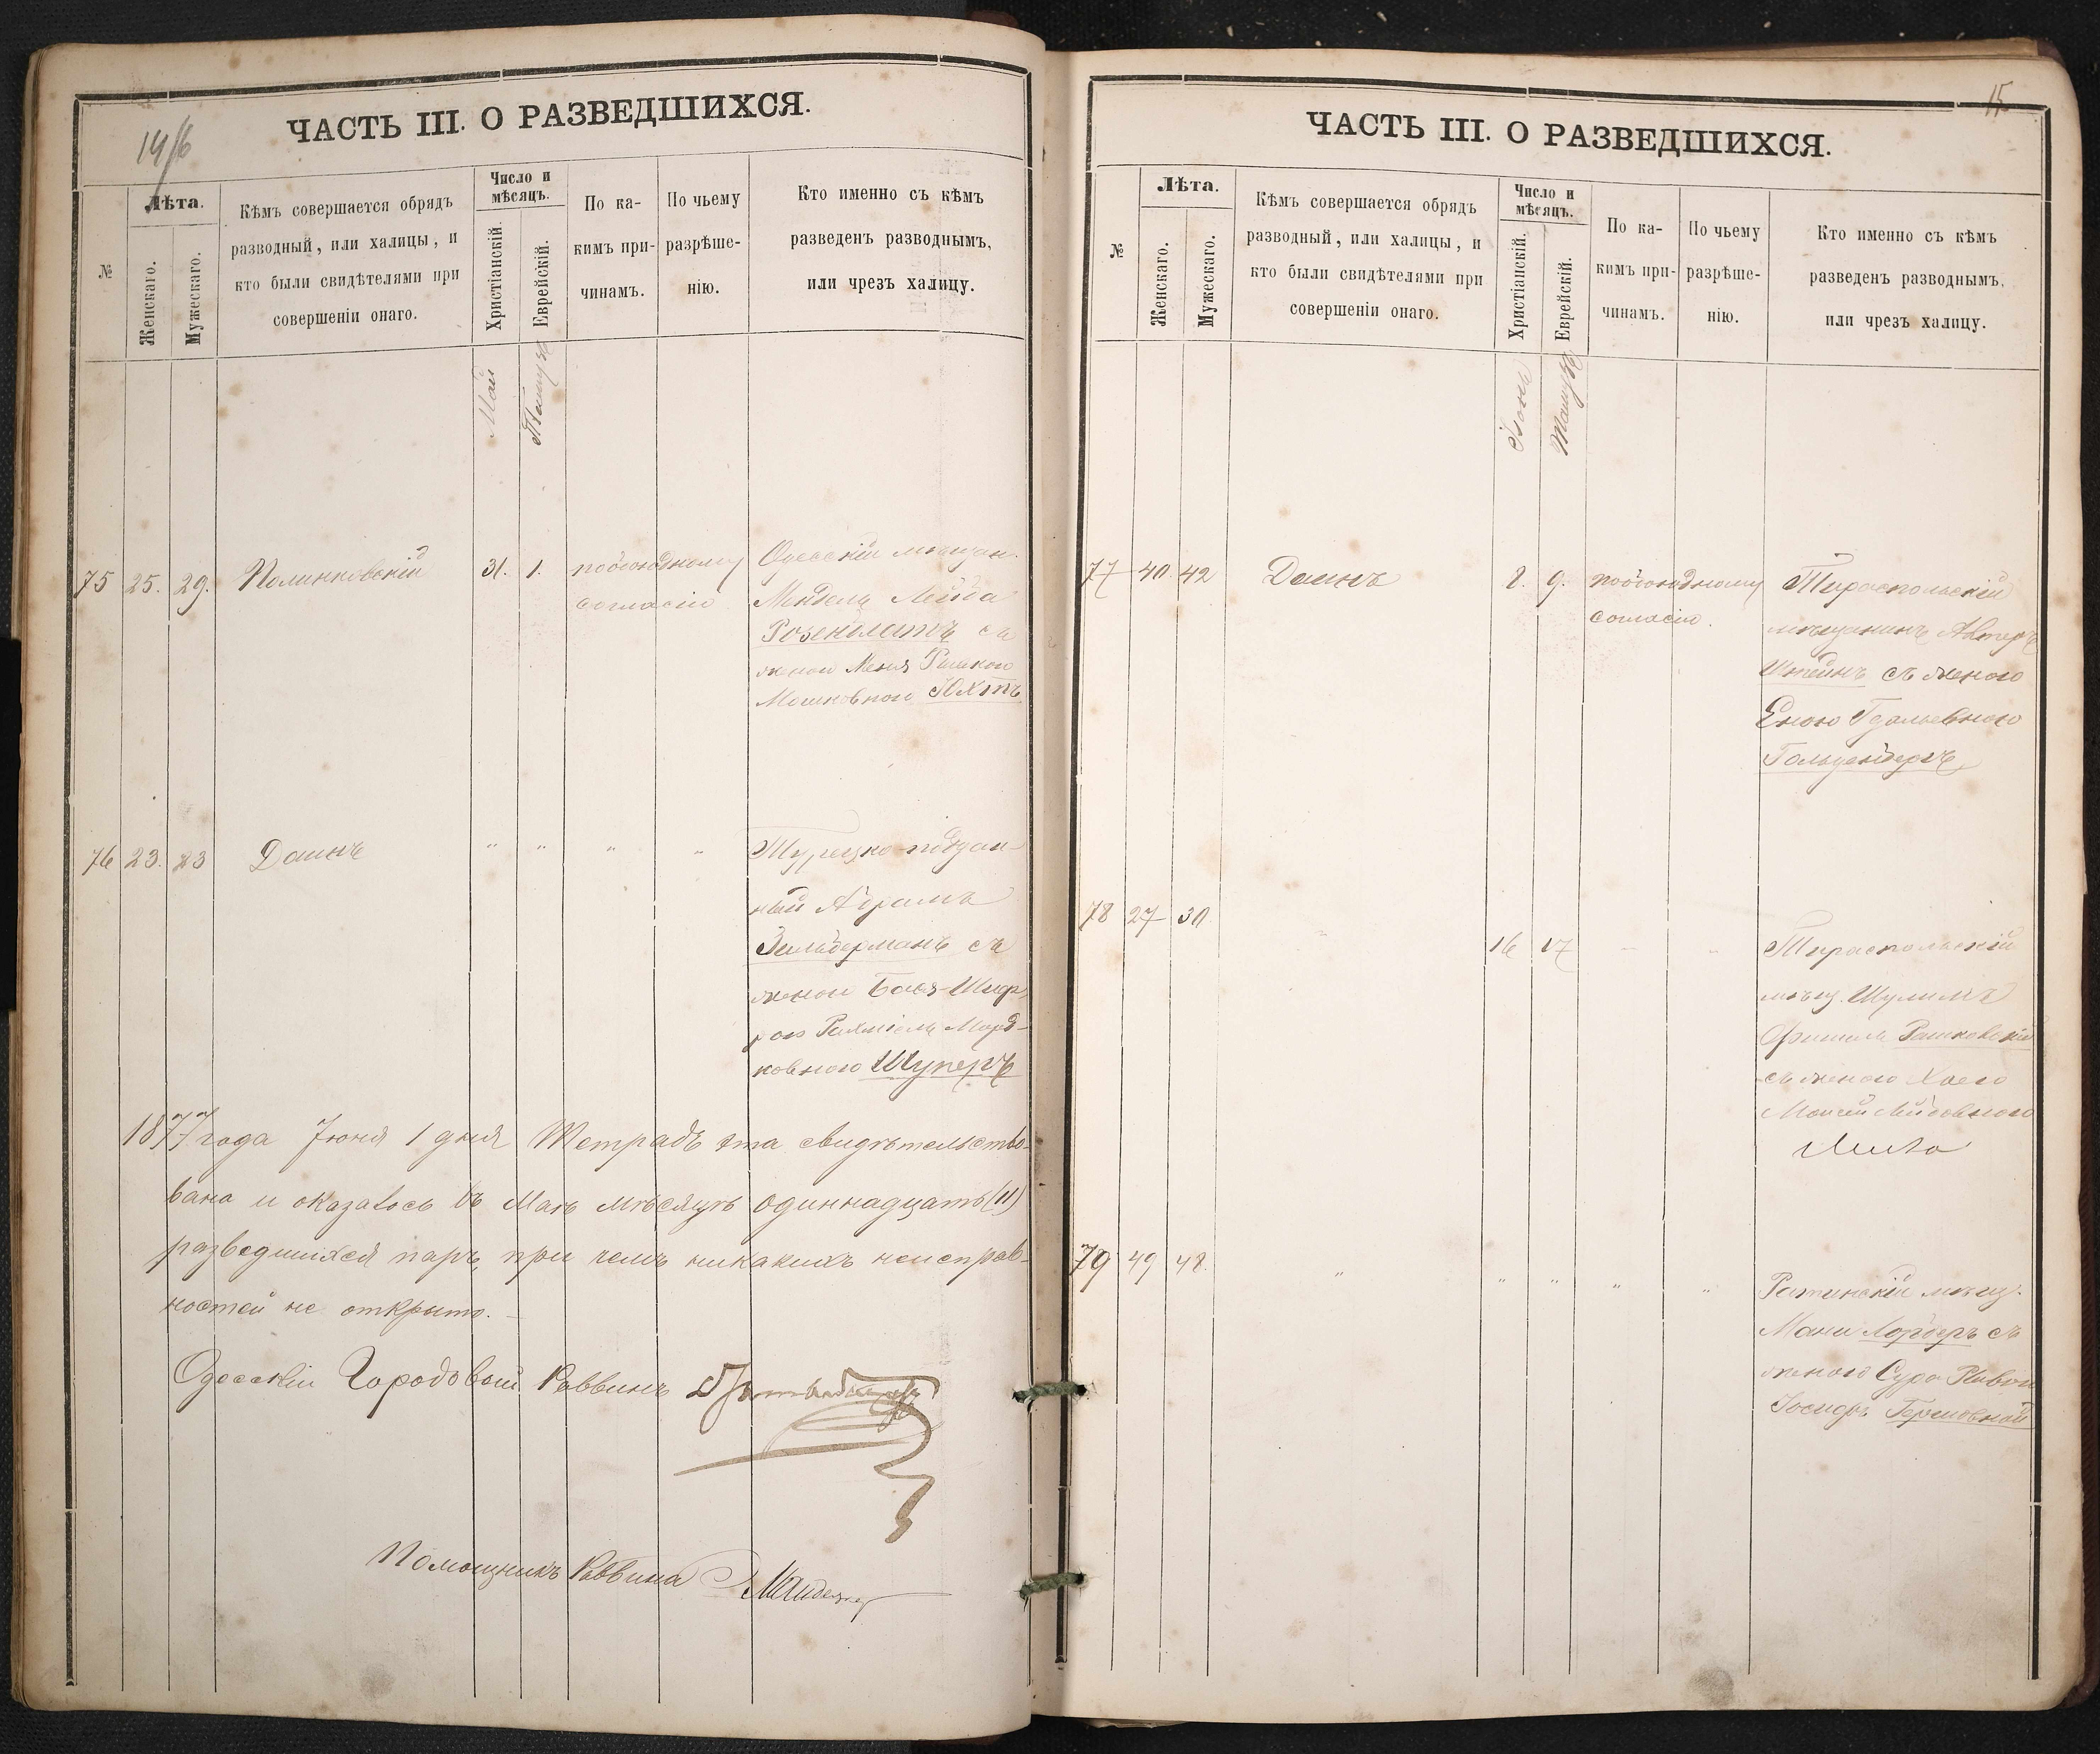 14/6
ЧАСТЬ III. О РАЗВЕДШИХСЯ.
№
Лѣта.
Женскаго.
Мужескаго.
Кѣмъ совершается обрядъ
разводный, или халицы, и
кто были свидѣтелями при
совершеніи онаго.
Число и
мѣсяцъ.
Христіанскій.
Еврейскій.
По ка-
кимъ при-
чинамъ.
По чьему
разрѣше-
нію.
Кто именно съ кѣмъ
разведенъ разводнымъ,
или чрезъ халицу.
Май
75 25. 29. Полинковскій 31. 1. пообоюдному
согласію
Одесскій мѣщан.
Мендель Лейба
Розенблитъ съ
женою
Мошковною Юхтъ
76 23. 23 Даинъ " " " "
Турецко-поддан-
ный Абрамъ
Зильберманъ съ
женою Бася-Шиф-
рою Рахміель Морд-
ковною Шуперъ
1877 года Іюня 1 дня Тетрадь эта свидѣтельство-
вана и оказалось въ Маѣ мѣсяцѣ одиннадцать (11)
разведшихся паръ, при чемъ никакихъ неисправ-
ностей не открыто.
Одесскій Городовой Раввинъ
Помощникъ Раввина
15
ЧАСТЬ III. О РАЗВЕДШИХСЯ.
№
Лѣта.
Женскаго.
Мужескаго.
Кѣмъ совершается обрядъ
разводный, или халицы, и
кто были свидѣтелями при
совершеніи онаго.
Число и
мѣсяцъ.
Христіанскій.
Еврейскій.
По ка-
кимъ при-
чинамъ.
По чьему
разрѣше-
нію.
Кто именно съ кѣмъ
разведенъ разводнымъ,
или чрезъ халицу.
Іюнь
Тамузъ
77 40. 42 Даинъ 8. 9. пообоюдному
согласію.
Тираспольскій
мѣщанинъ
Штейнъ съ женою
Еною Гдальевною
Гольденбергъ
78 27 30 " 16 17 " "
Тираспольскій
мѣщ. Шулимъ
Фишель Рашковскій
съ женою Хаею
79 49 48. " " " " "
мѣщ.
Мани Лорберъ съ
женою Сура Ривка
Іосифъ Гершовной